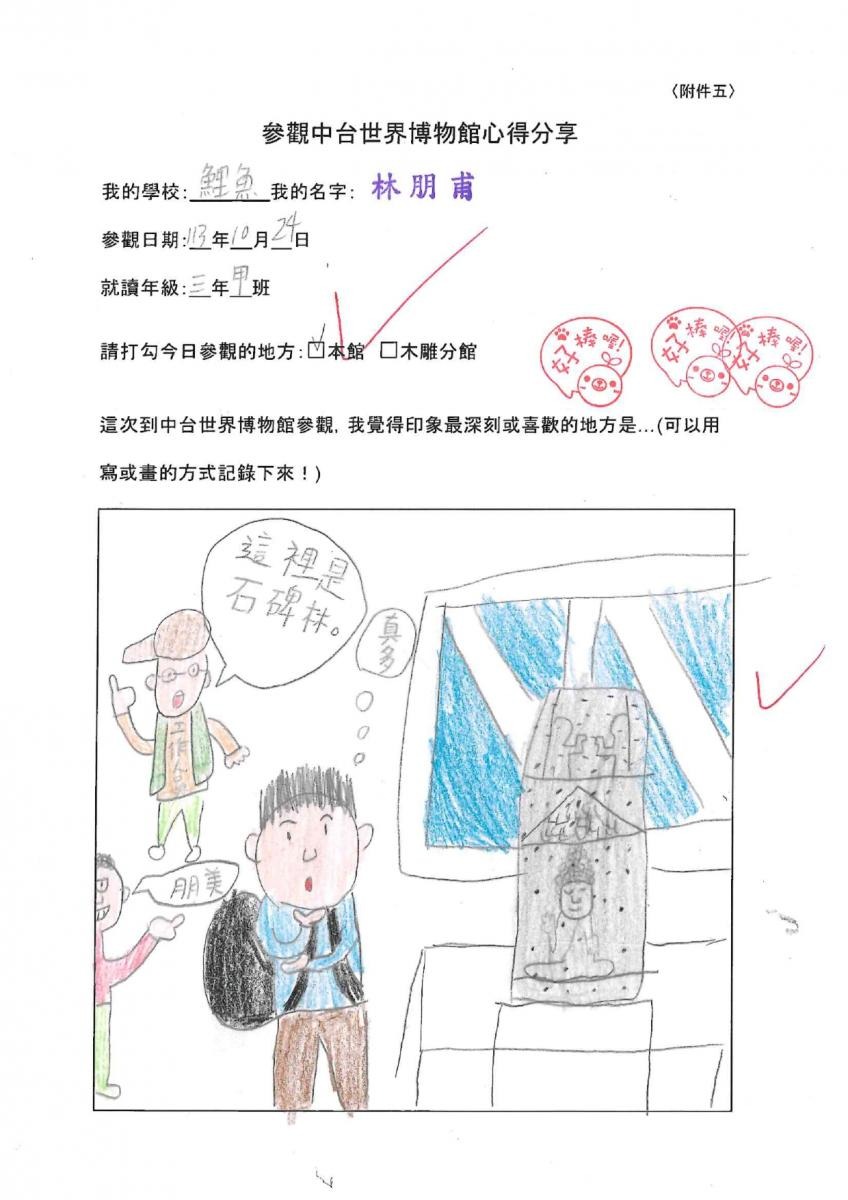 〈附件五〉
參觀中台世界博物館心得分享
我的學校:鯉魚 我的名字: 林朋甫
參觀日期:113年10月24日
就讀年級:三年甲班
請打勾今日參觀的地方:☑本館 □木雕分館
好棒喔!
好棒喔!
好棒喔!
這次到中台世界博物館參觀, 我覺得印象最深刻或喜歡的地方是…(可以用
寫或畫的方式記錄下來!)
這裡是
石碑林。
真多
工作人員
朋美